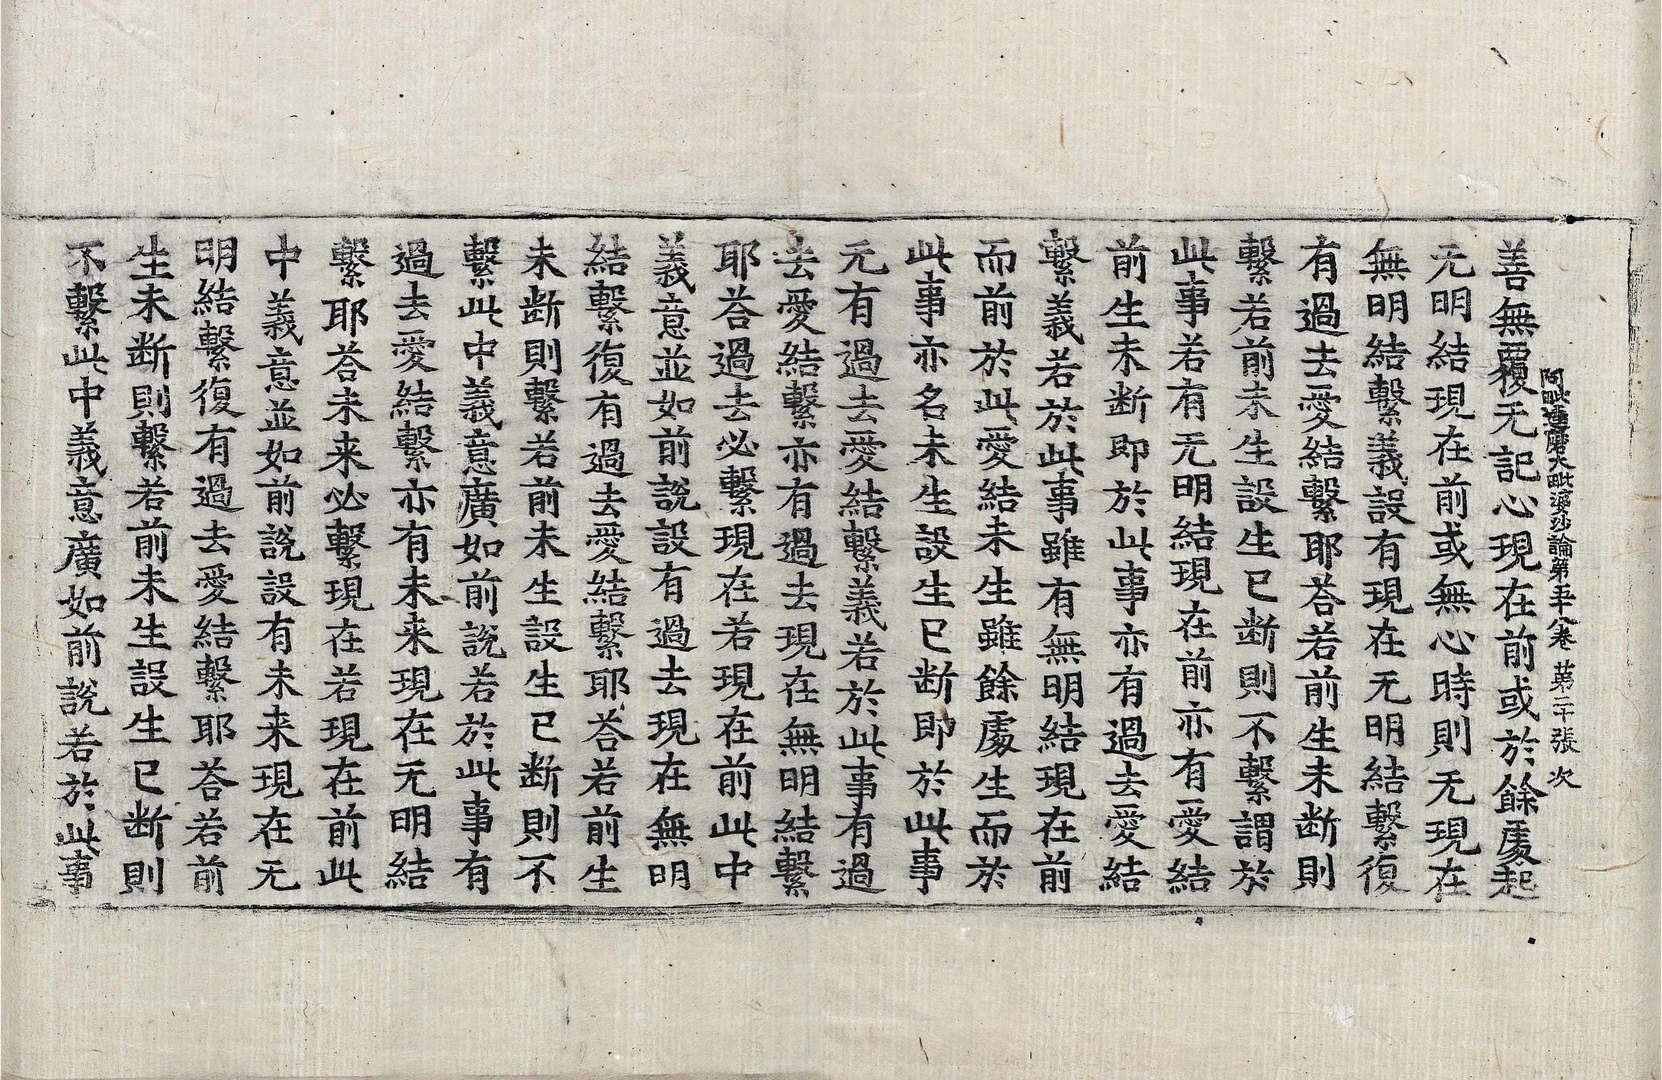 阿毗達磨大毗婆沙論第五十八卷 苐二十張 次
善無覆无記心現在前或於餘處起
无明結現在前或無心時則无現在
無明結繫義設有現在无明結繫復
有過去愛結繫耶荅若前生未断則
繫若前未生設生已断則不繫謂於
此事若有无明結現在前亦有愛結
前生未断即於此事亦有過去愛結
繫義若於此事雖有無明結現在前
而前於此愛結未生雖餘處生而於
此事亦名未生設生已断即於此事
无有過去愛結繫義若於此事有過
去愛結繫亦有過去現在無明結繫
耶荅過去必繫現在若現在前此中
義意並如前說設有過去現在無明
結繫復有過去愛結繫耶荅若前生
未断則繫若前未生設生已断則不
繫此中義意廣如前說若於此事有
過去愛結繫亦有未来現在无明結
繫耶荅未来必繫現在若現在前此
中義意並如前說設有未来現在无
明結繫復有過去愛結繫耶荅若前
生未断則繫若前未生設生已断則
不繫此中義意廣如前說若於此事